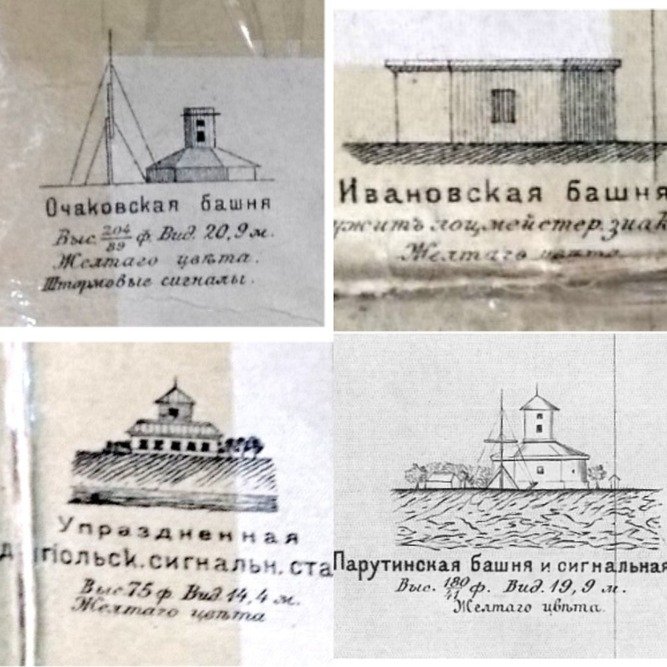 Очаковская башня
Выс. 204/89 ф. Вид. 20,9 м.
Желтаго цвѣта.
Штормовые сигналы.
Ивановская башня
жить лоцмейстер. знак
Желтаго цвѣта
Упраздненная
гіольск. сигнальн. ста
Выс 75 ф. Вид 14,4 м.
Желтаго цвѣта
Парутинская башня и сигнальная
Выс. 180/41 ф. Вид. 19,9 м.
Желтаго цвѣта.